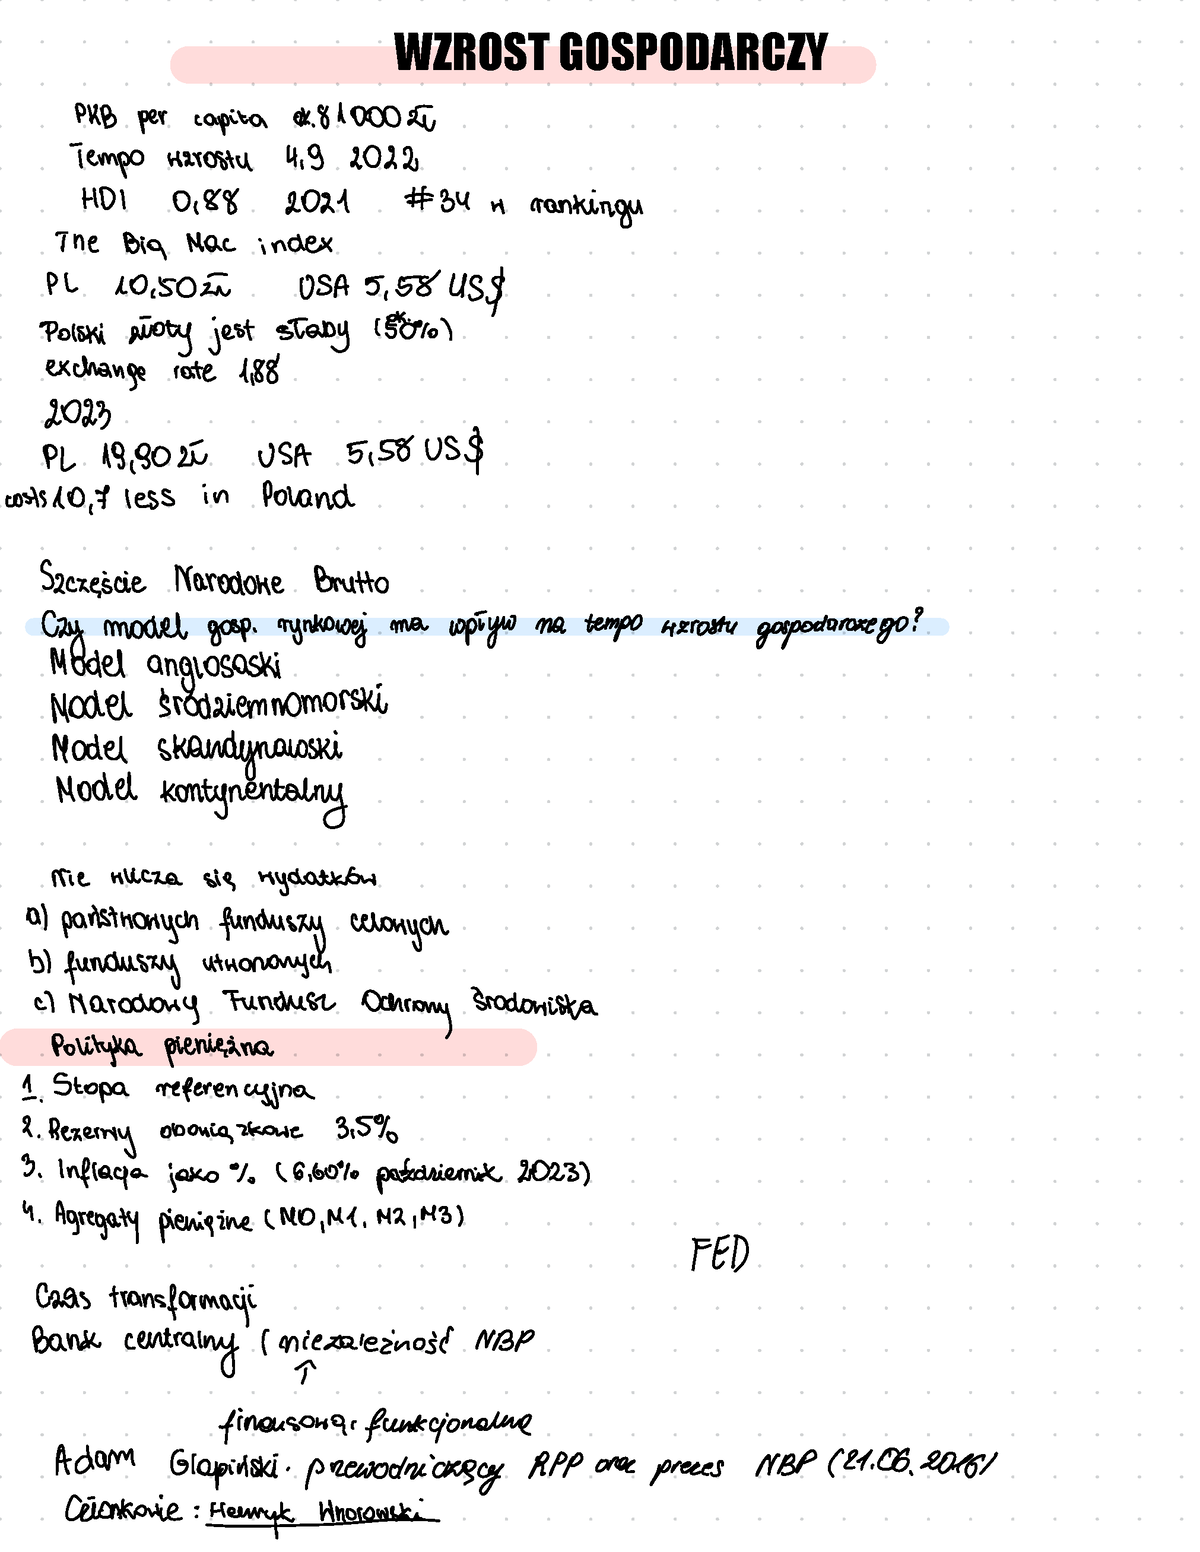 WZROST GOSPODARCZY
PKB per capita ok. 81000 zł
Tempo wzrostu 4,9 2022
HDI 0,88 2021 #34 w rankingu
The Big Mac index
PL 10,50 zł USA 5,58 US$
Polski złoty jest słaby (ok. 50%)
exchange rate 1,88
2023
PL 19,90 zł USA 5,58 US$
costs 10,7 less in Poland
Szczęście Narodowe Brutto
Czy model gosp. rynkowej ma wpływ na tempo wzrostu gospodarczego?
Model anglosaski
Model śródziemnomorski
Model skandynawski
Model kontynentalny
Nie wlicza się wydatków
a) państwowych funduszy celowych
b) funduszy
c) Narodowy Fundusz Ochrony Środowiska
Polityka pieniężna
1. Stopa referencyjna
2. Rezerwy obowiązkowe 3,5%
3. Inflacja jako % (6,60% październik 2023)
4. Agregaty pieniężne (M0, M1, M2, M3)
FED
Czas transformacji
Bank centralny (niezależność NBP
↑
finansowa, funkcjonalna
Adam Glapiński. przewodniczący RPP oraz prezes NBP (21.06.2016)
Członkowie: Henryk Wnorowski